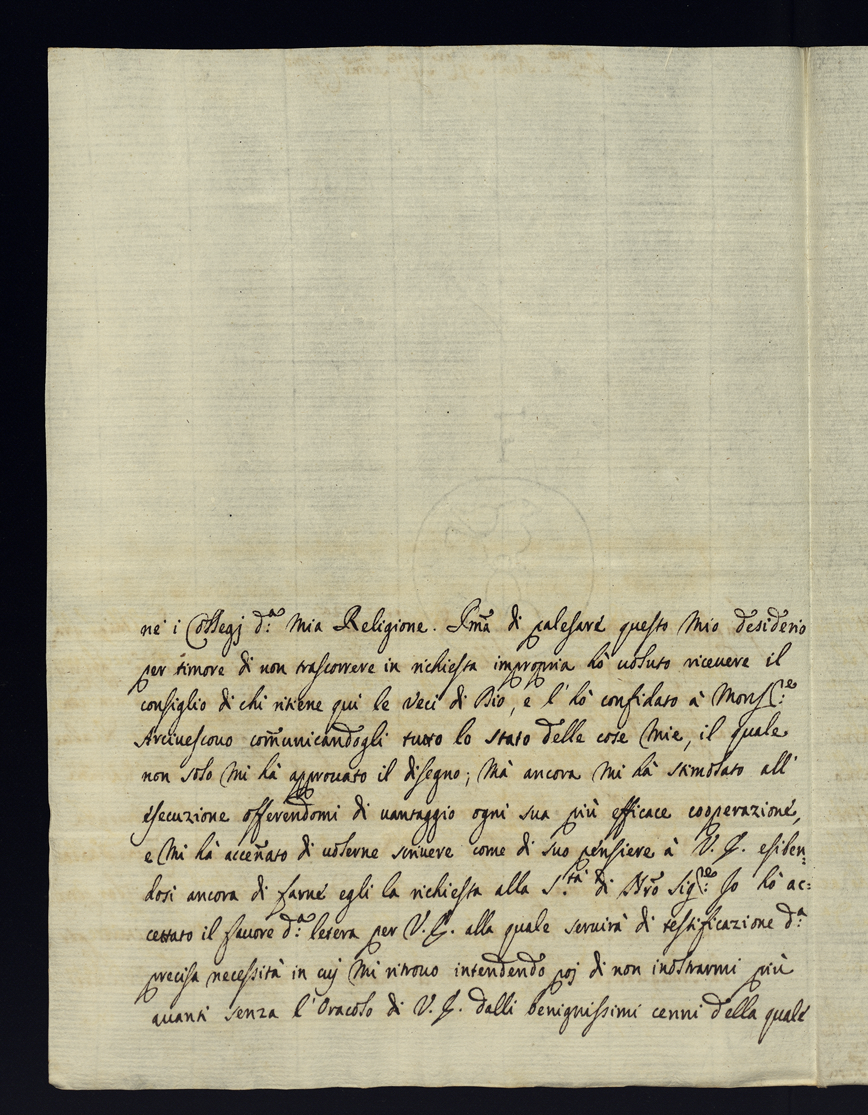 ne' i Collegj d.ª Mia Religione. Pmã di palesare questo Mio desiderio
per timore di non trascorrere in richiesta impropria hò uoluto riceuere il
consiglio di chi ritiene quì le Veci di Dio, e l'hò confidato à Mons.re
Arciuescouo com̃unicandogli tutto lo stato delle cose Mie, il quale
non solo Mi hà approuato il disegno; Mà ancora Mi hà stimolato all'
esecuzione offerendomi di uantaggio ogni sua più efficace cooperazione,
e Mi hà acceñato di uolerne scriuere come di suo pensiere à V. E. esiben=
dosi ancora di farne egli la richiesta alla S.tà di Nrõ Sig.re Io hò ac=
cettato il fauore d.ª letera per V. E. alla quale seruirà di testificazione d.ª
precisa necessità in cuj Mi ritrouo intendendo poj di non inoltrarmi più
auanti senza l'Oracolo di V. E. dalli benignissimi cenni della quale